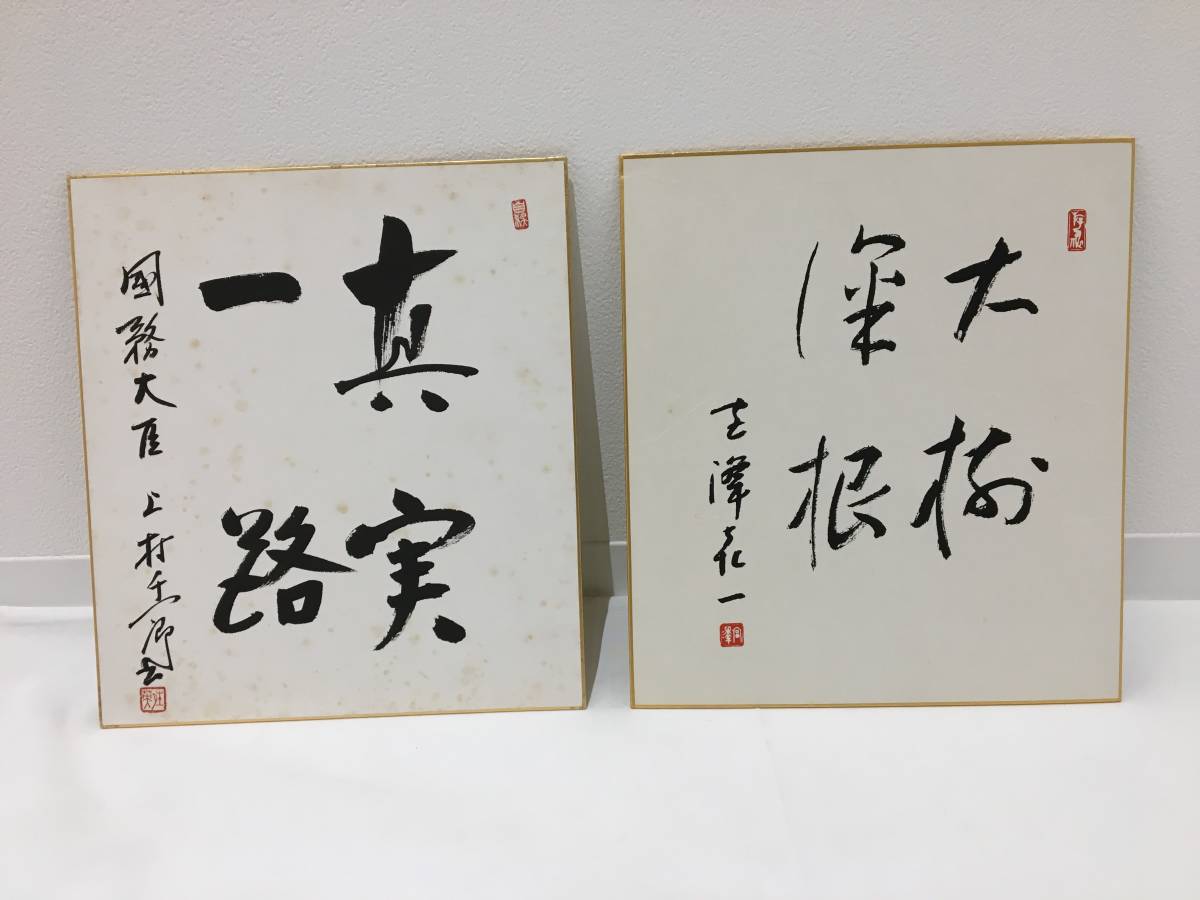 真実
一路
國務大臣 上村千一郎書
大樹
深根
宮澤喜一